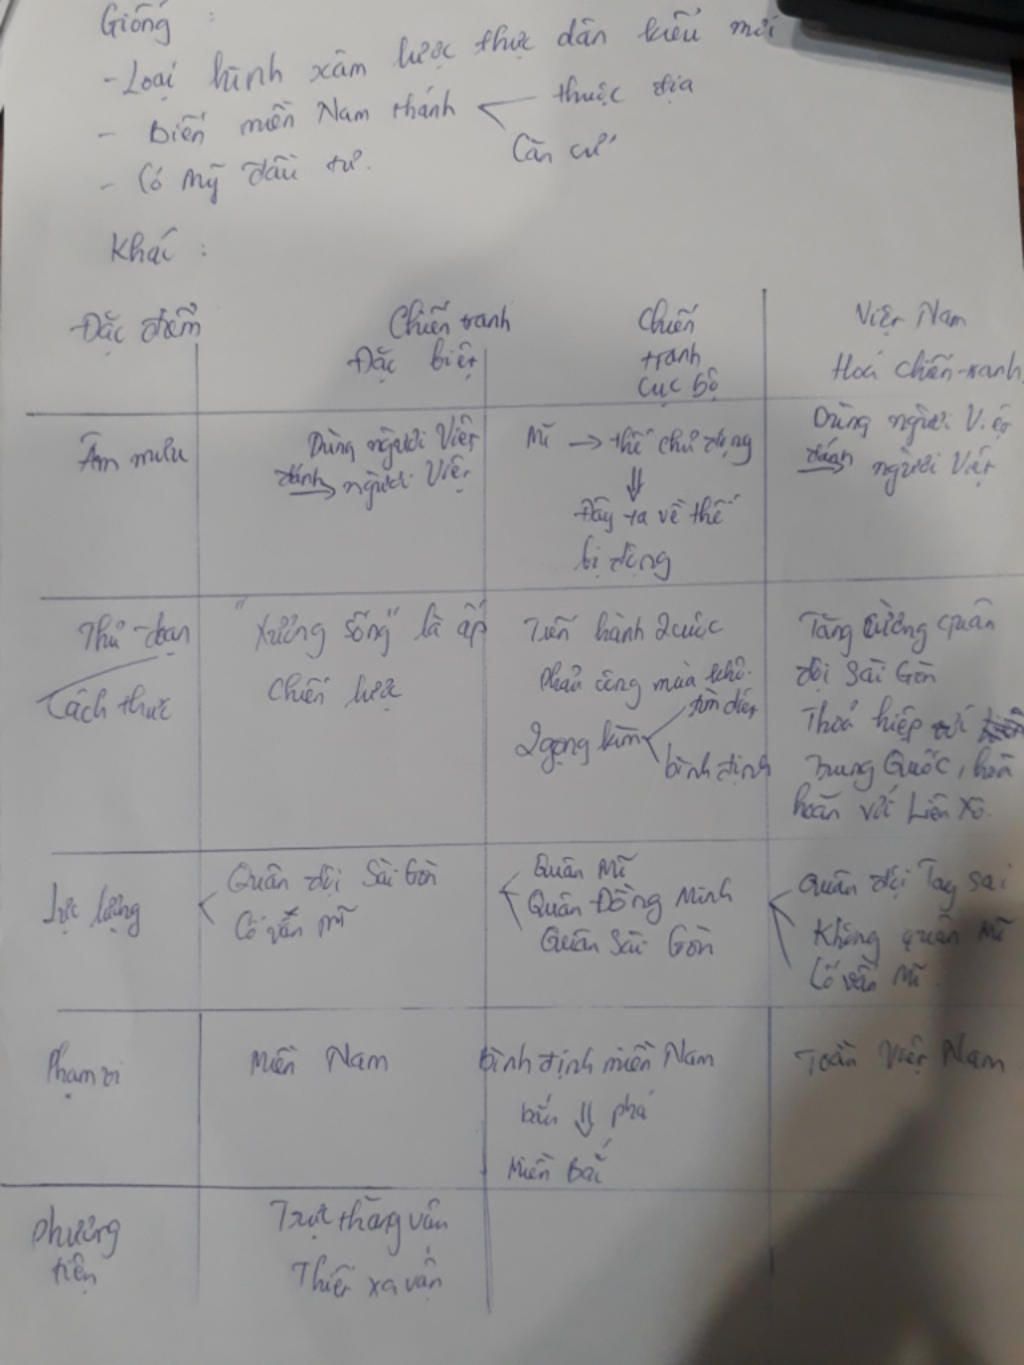 Giống :
- Loại hình xâm lược thực dân kiểu mới
- Biến miền Nam thành thuộc địa
Căn cứ
- Có Mỹ đầu tư.
Khác :
Đặc điểm
Chiến tranh
Đặc biệt
Chiến
tranh
cục bộ
Việt Nam
Hoá chiến tranh
Âm mưu
Dùng người Việt
đánh người Việt
Mĩ → thế chủ động
⇓
Đẩy ta về thế
bị động
Dùng người Việt
đánh người Việt
Thủ đoạn
Cách thức
"Xương sống" là ấp
Chiến lược
Tiến hành 2 cuộc
Phản công mùa khô
2 gọng kìm
tìm diệt
bình định
Tăng cường quân
đội Sài Gòn
Thoả hiệp với
Trung Quốc, hoà
hoãn với Liên Xô.
Lực lượng
Quân đội Sài Gòn
Cố vấn Mĩ
Quân Mĩ
Quân Đồng Minh
Quân Sài Gòn
Quân đội Tay sai
Không quân Mĩ
Cố vấn Mĩ.
Phạm vi
Miền Nam
Bình định miền Nam
bắn ⇓ phá
Miền Bắc
Toàn Việt Nam
Phương
tiện
Trực thăng vận
Thiết xa vận